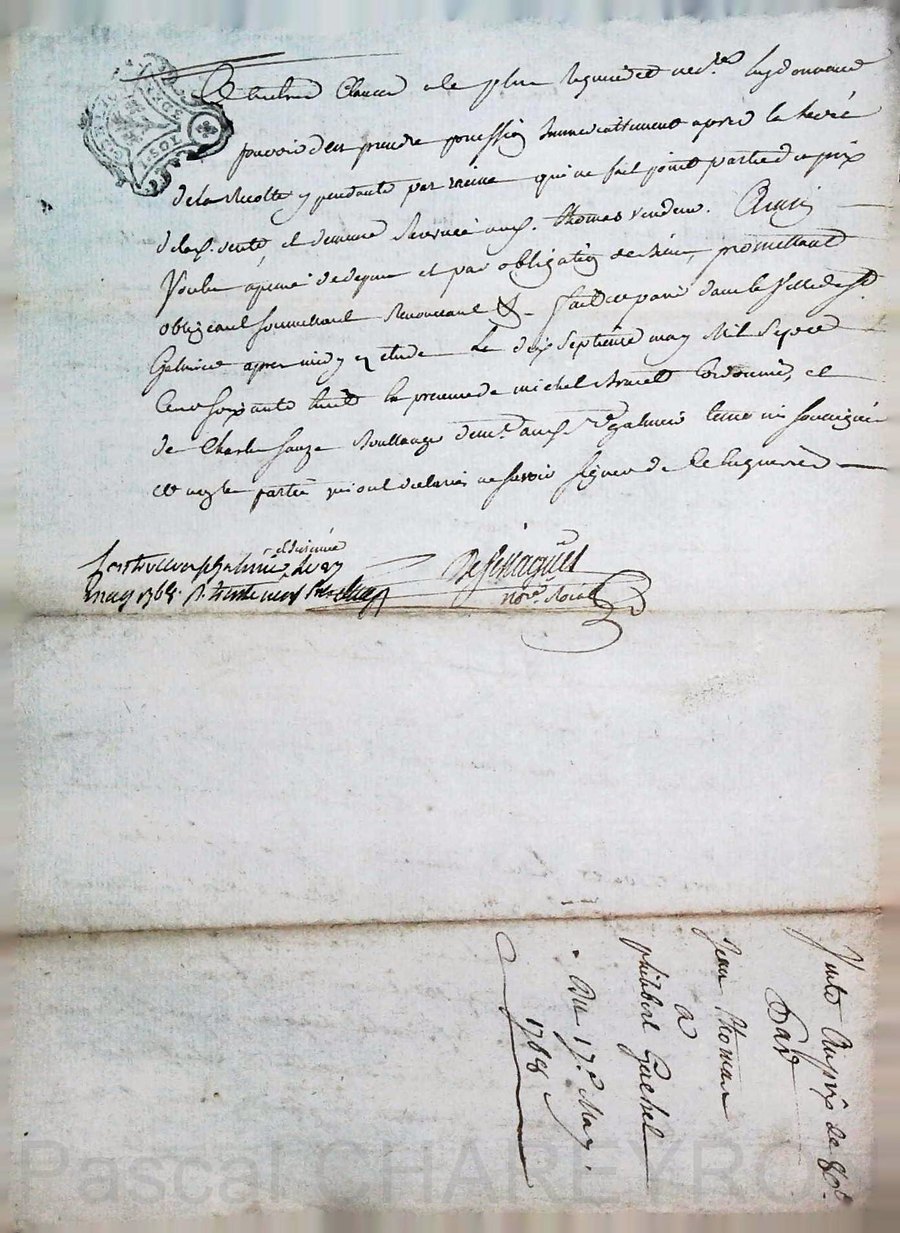 Clause a le plus requise et nec.re luy donnant
pouvoir d'en prendre possession Immediattement apres la levée
de la Recolte y pendante par racine qui ne fait point partie du prix
de la p. vente et demeure Reservée aud. Thomas vendeur. Ainsi
Voulu a peine de depens et par obligation de biens, promettant
obligeant soumettant Renonceant &. fait et passé dans la Ville de St
Galmier apres midy en etude Le dix Septieme may Mil Sept
Cent soixante huit En presence de michel Cordonnier, et
de Charles Boullanger dem.t aud. St galmier temoins soussignés
et non les parties qui ont declarées ne savoir signer de ce Requises
may 1768.
not.re Roial
Vente Au prix de 80#
Par
Jean Thomas
a
philibert Guchel
Du 17.e May.
1768
Pascal CHAREYRO